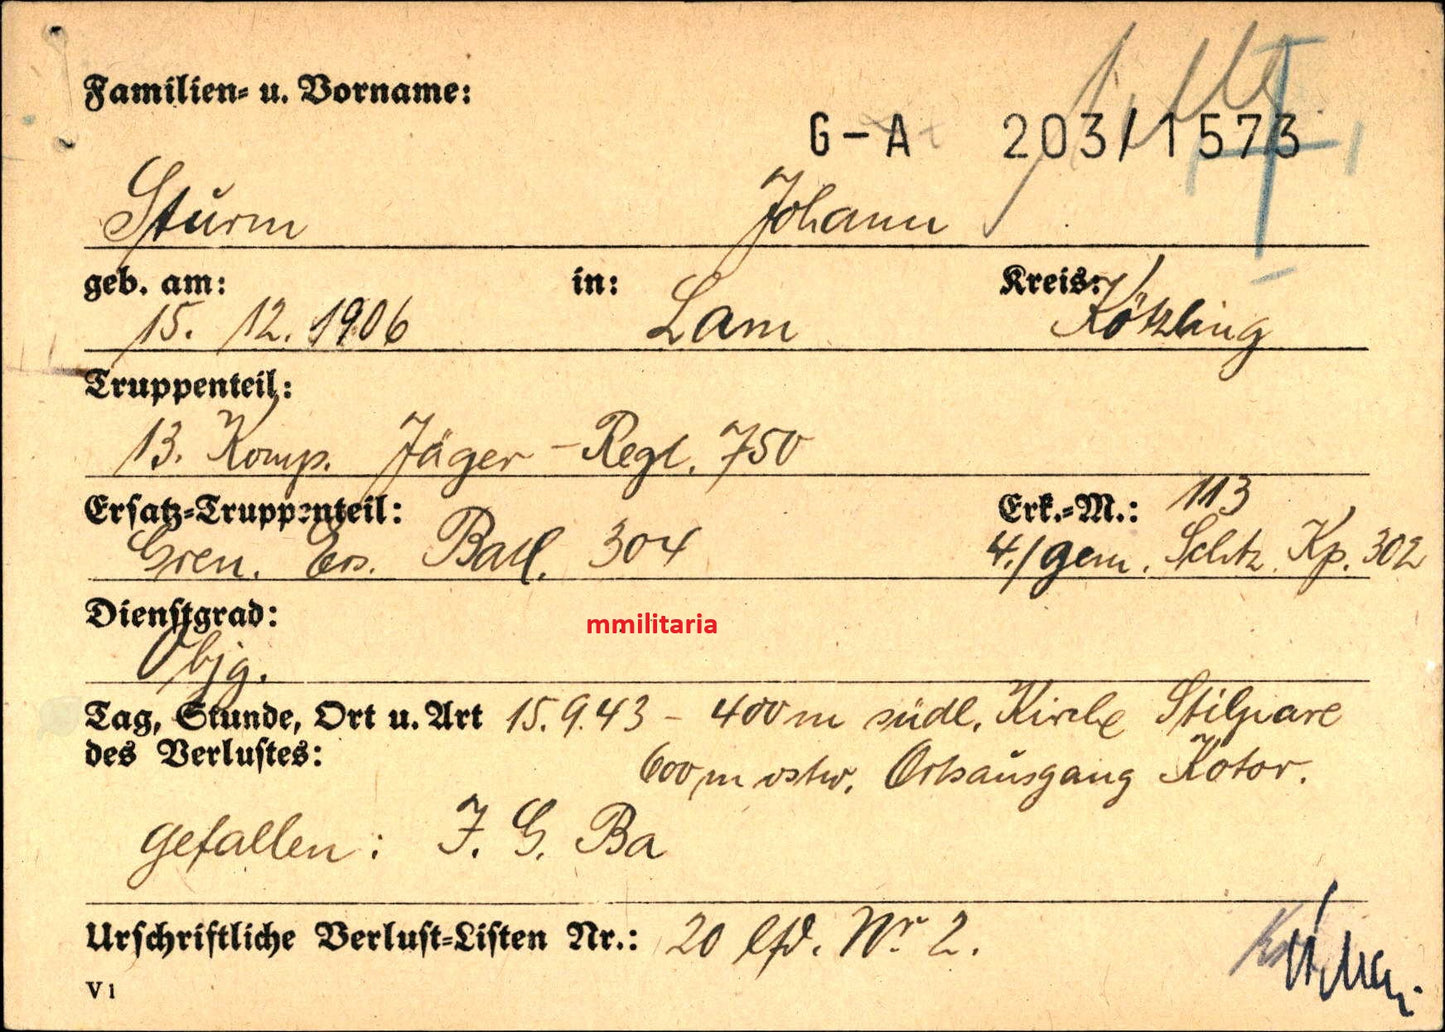 Familien- u. Vorname:
G-A 203/1573
Sturm Johann
geb. am: in: Kreis:
15. 12. 1906 Lam Kötzting
Truppenteil:
13. Komp. Jäger-Regt. 750
Ersatz-Truppenteil: Erk.-M.: 113
Gren. Ers. Batl. 304 4./gem. Schtz. Kp. 302
Dienstgrad:
mmilitaria
Objg.
Tag, Stunde, Ort u. Art 15.9.43 - 400 m südl. Kirche
des Verlustes: 600 m ostw. Ortsausgang Kotor.
gefallen: J. G. Ba
Urschriftliche Verlust-Listen Nr.: 20 lfd. Nr 2.
V 1